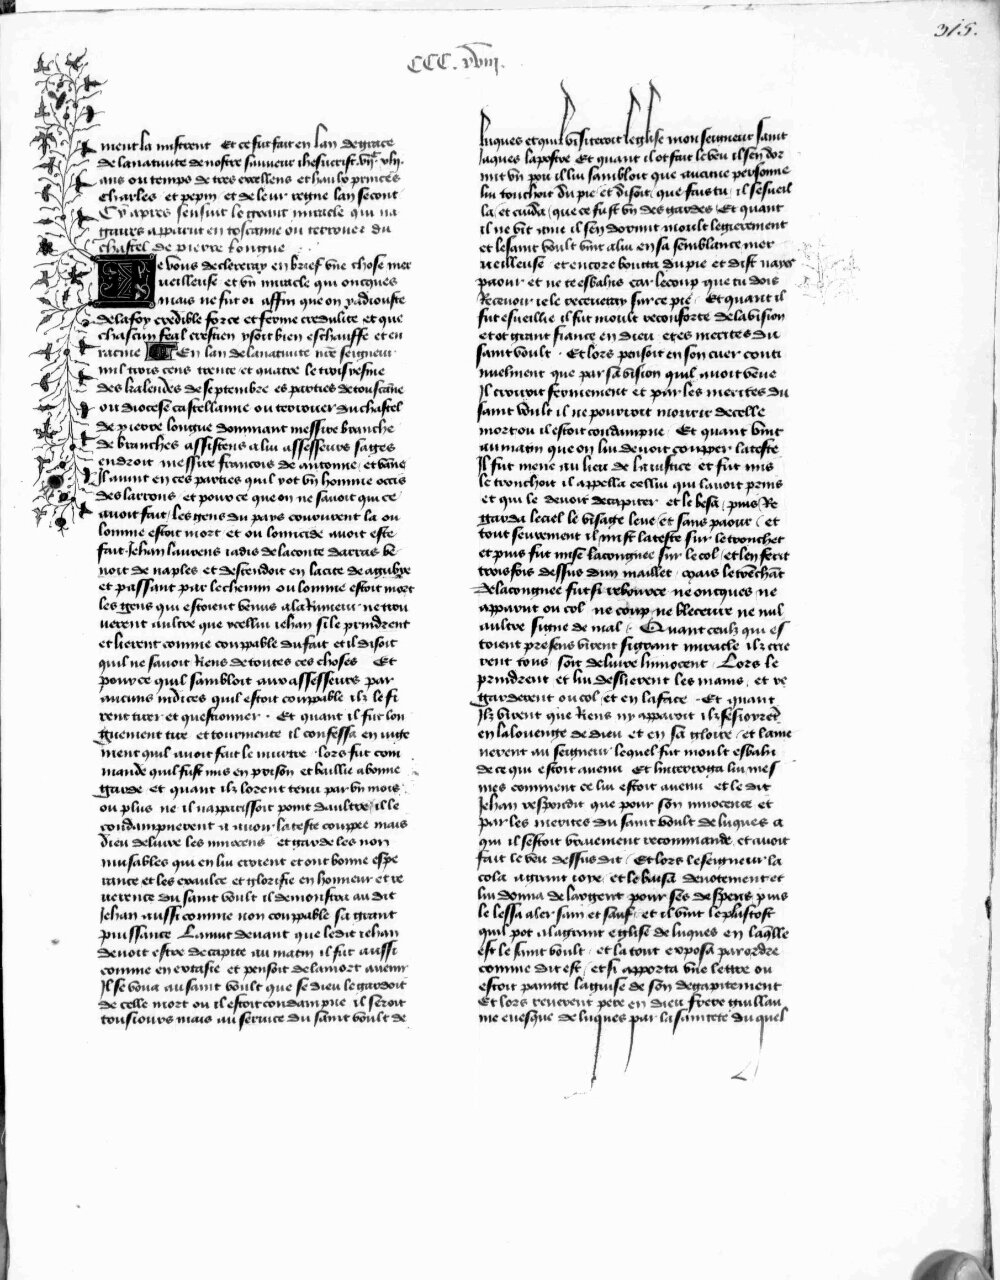 315.
CCC. xviii.
ment la mistrent Et ce fut fait en lan de grace
de la nativite de nostre sauveur ihesucrist.
ans ou temps de tres excellens et haulx princes
charles et pepin et de leur regne lan second
Cy apres sensuit le grant miracle qui na
gaires apparut en toscanne ou terrouer du
chastel de pierre longue
Je vous declereray en brief vne chose mer
ueilleuse et vn miracle qui oncques
mais ne fut oi affin que on y adiouste
de la foy credible force et ferme credulite et que
chascun feal crestien y soit bien eschauffe et en
racine En lan de la natiuite nre seigneur
mil trois cens trente et quatre le troisiesme
des kalendes de septembre es parties de touscane
ou diocese castellanne ou terrouer du chastel
de pierre longue dominant messire branche
de branches assistens a lui assesseurs sages
en droit messire francois de antonne et
Il auint en ces parties quil y ot vn homme occis
des larrons et pour ce que on ne sauoit qui ce
auoit fait les gens du pays coururent la ou
lomme estoit mort et ou lomicide auoit este
fait Jehan laurens iadis de la conte darras ve
noit de naples et descendoit en la cite de agubye
et passant par le chemin ou lomme estoit mort
les gens qui estoient venus a la rumeur ne trou
uerent aultre que ycellui iehan si le prindrent
et lierent comme coupable du fait et il disoit
quil ne sauoit riens de toutes ces choses Et
pour ce quil sambloit aux assesseurs par
aucuns indices quil estoit coupable ilz le fi
rent tirer et questionner. Et quant il fut lon
guement tire et tourmente il confessa en iuge
ment quil auoit fait le murtre lors fut com
mande quil fust mis en prison et baillie a bonne
garde et quant ilz lorent tenu par vn mois
ou plus ne il napparissoit point daultre il le
condampnerent a auoir la teste couppee mais
dieu deliure les innocens et garde les non
nuisables qui en lui croient et ont bonne espe
rance et les exaulce et glorifie en honneur et re
uerence du saint voult il demonstra au dit
Jehan aussi comme non coupable sa grant
puissance Lanuit deuant que ledit iehan
deuoit estre decapite au matin il fut aussi
comme en extasie et pensoit de la mort auenir
Il se voua au saint voult que se dieu le gardoit
de celle mort ou il estoit condampne il seroit
tousiours mais au seruice du saint voult de
luques et qui visiteroit leglise mon seigneur saint
iaques lapostre Et quant il ot fait le veu il sen dor
mit vn pou il lui sambloit que aucune personne
lui touchoit du pie et disoit que fais tu il sesueil
la et cuida que ce fust vn des gardes Et quant
il ne vit ame il sen dormit moult legierement
et le saint voult vint a lui en sa semblance mer
ueilleuse et encore bouta du pie et dist nayes
paour et ne te esbahis car le coup que tu dois
Receuoir ie le receueray sur ce pie Et quant il
fut esueillie il fut moult reconforte de la vision
et ot grant fiance en dieu et es merites du
saint voult. Et lors pensoit en son cuer conti
nuelment que par sa vision quil auoit veue
Il creoit fermement et par les merites du
saint voult il ne pourroit mourir de celle
mort ou il estoit condampne Et quant vint
au matin que on lui deuoit coupper la teste
Il fut mene au lieu de la iustice et fut mis
le tronchoit il appella cellui qui lauoit prins
et qui le deuoit decapiter et le besa puis Re
garda le ciel le visage leue et sans paour et
tout seurement il mist la teste sur le tronchet
et puis fut mise la congnee sur le col et len ferit
trois fois dessus dun maillet mais le trenchant
de la congnee fut si rebource ne oncques ne
apparut ou col ne coup ne bleceure ne nul
aultre signe de mal. Quant ceulx qui es
toient presens virent si grant miracle ilz crie
rent tous soit deliure linnocent. Lors le
prindrent et lui deslierent les mains et re
garderent ou col et en la face Et quant
Ilz virent que riens ny apparoit ilz sesioyret
en la louenge de dieu et en sa gloire et lame
nerent au seigneur lequel fut moult esbahi
de ce qui estoit auenu Et linterroga lui mes
mes comment ce lui estoit auenu et le dit
Jehan respondit que pour son innocence et
par les merites du saint voult de luques a
qui il sestoit vraiement recommande et auoit
fait le veu dessus dit Et lors le seigneur la
cola a grant ioye et le baisa deuotement et
lui donna de largent pour ses despens puis
le lessa aler sain et sauf et il vint le plustost
quil pot a la grant eglise de luques en laqlle
est le saint voult et la tout exposa par ordre
comme dit est et si apporta vne lettre ou
estoit painte la guise de son decapitement
Et lors reuerent pere en dieu frere guillau
me euesque de luques par la saintete du quel